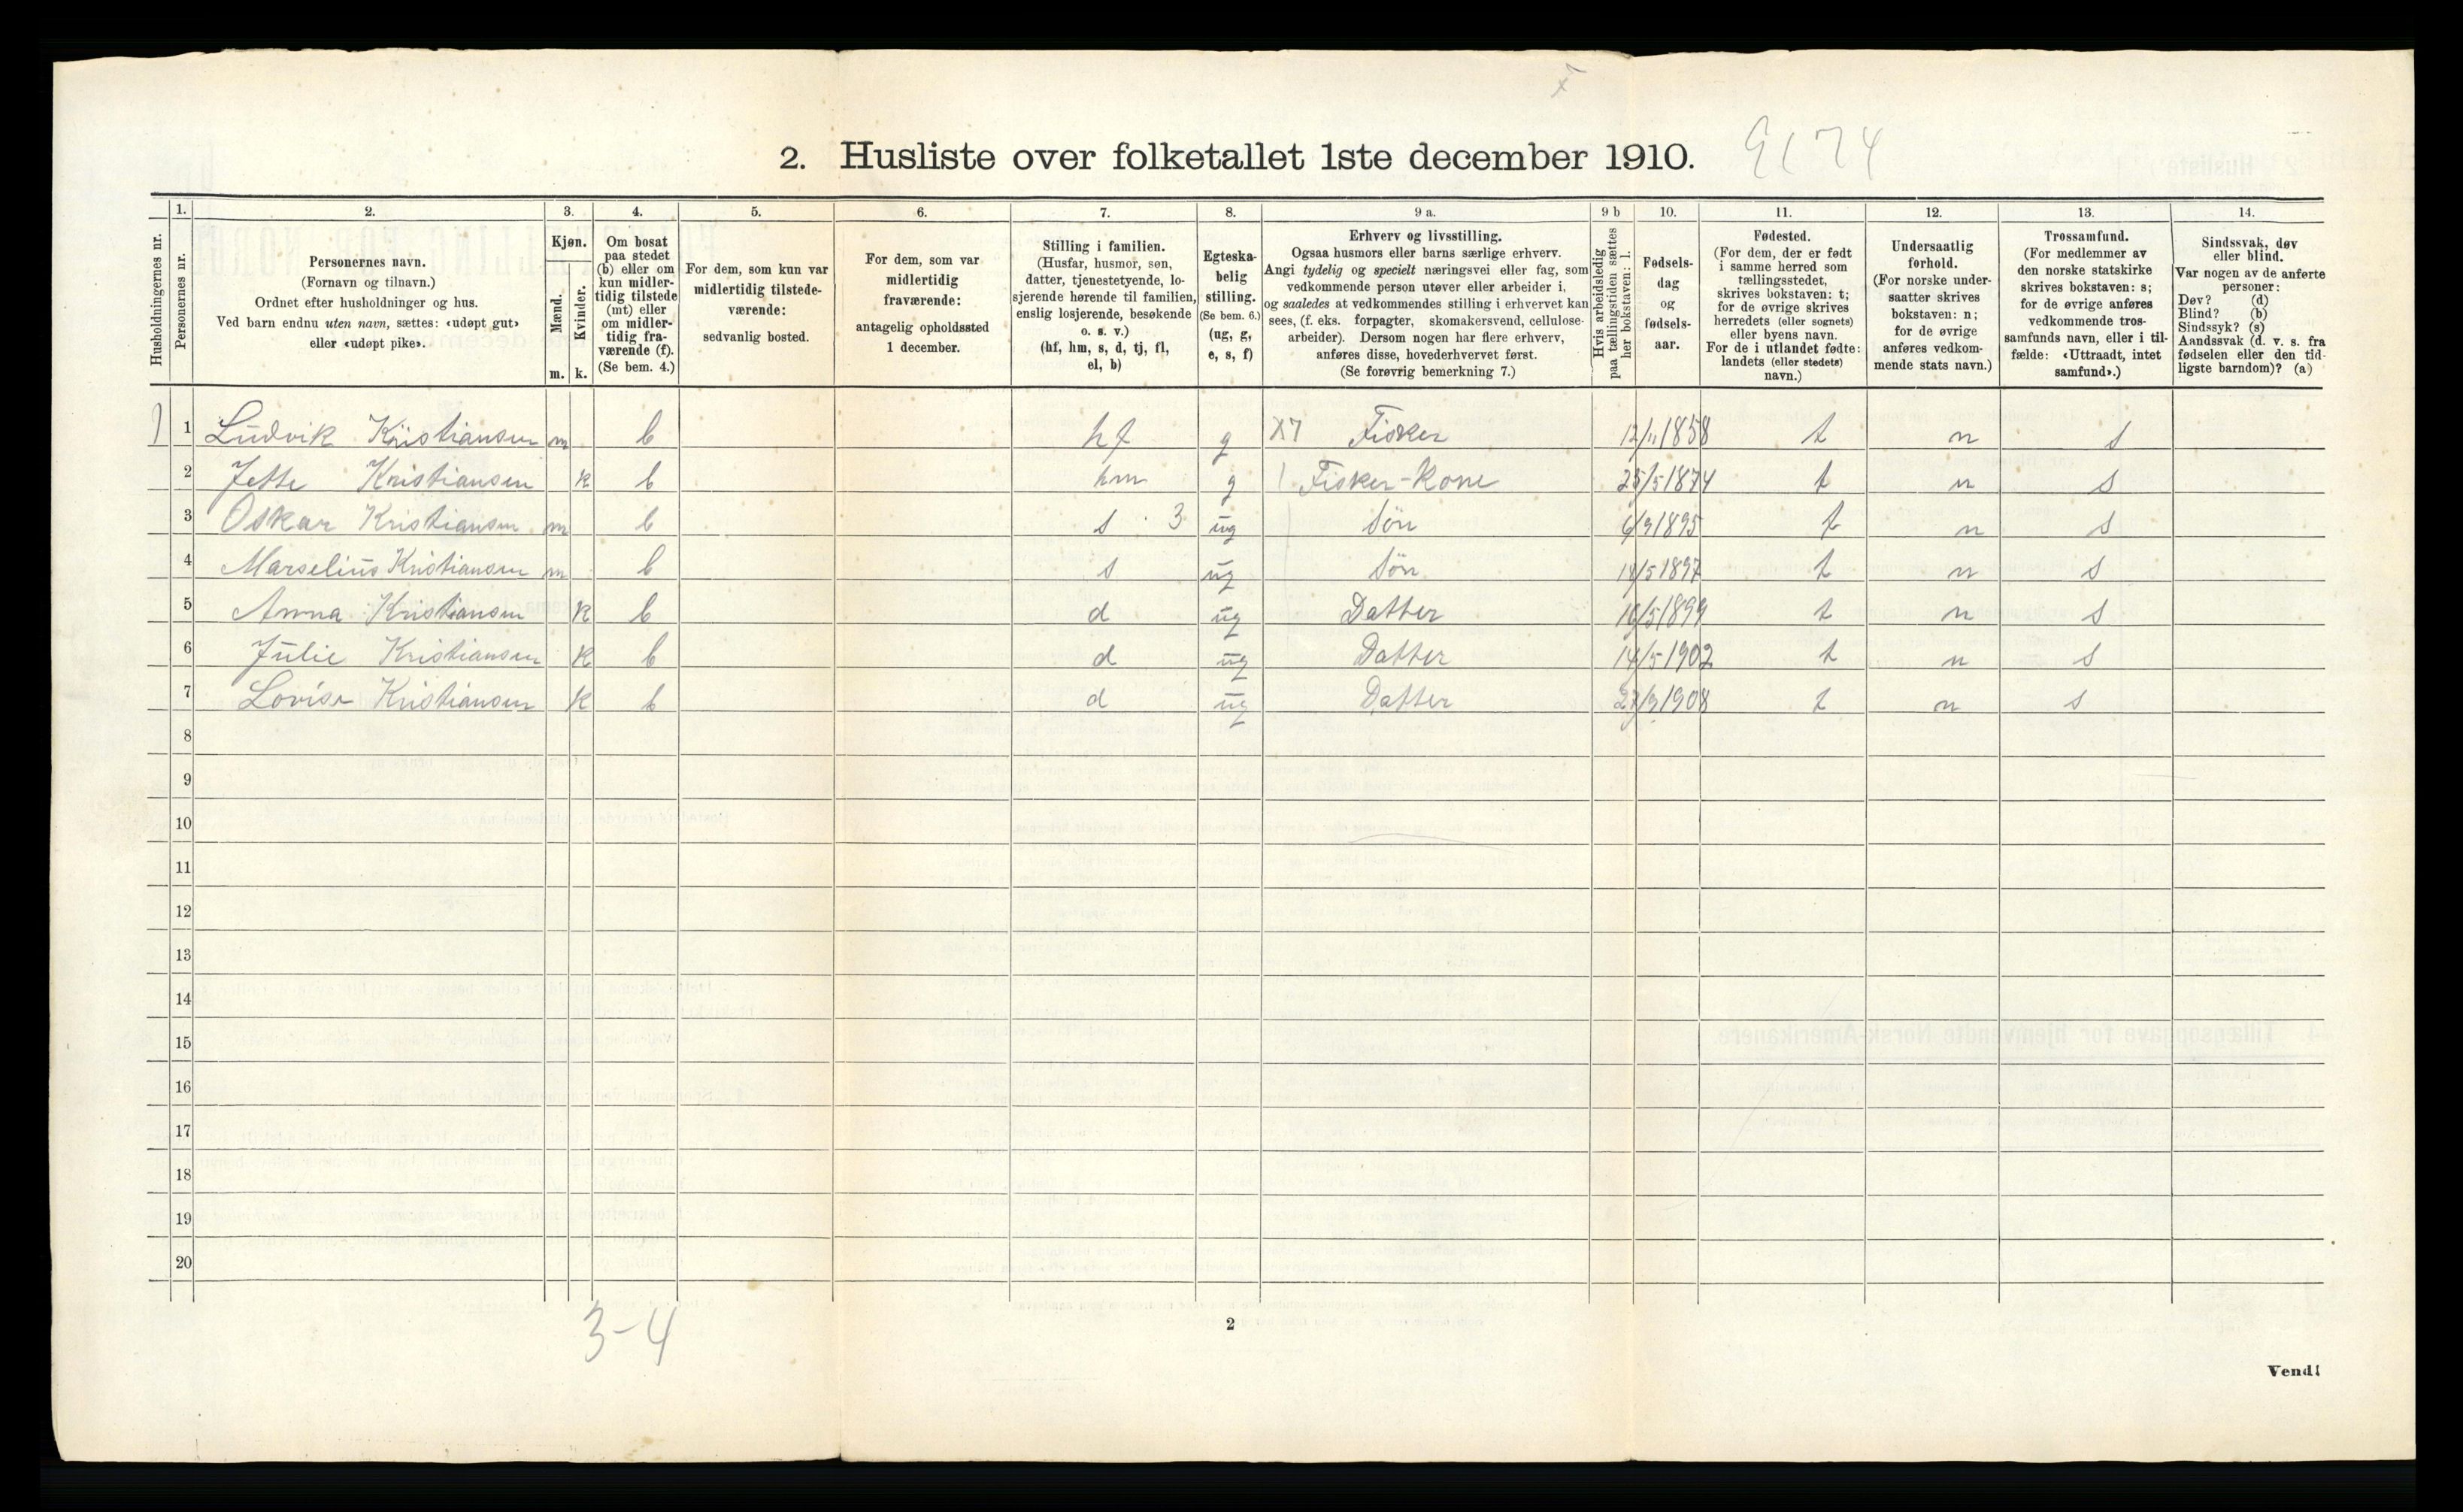 2. Husliste over folketallet 1ste december 1910.
Husholdningernes nr.
1.
Personernes nr.
2.
Personernes navn.
(Fornavn og tilnavn.)
Ordnet efter husholdninger og hus.
Ved barn endnu uten navn, sættes: «udøpt gut»
eller «udøpt pike».
3.
Kjøn.
Mænd.
Kvinder.
m. k.
4.
Om bosat
paa stedet
(b) eller om
kun midler-
tidig tilstede
(mt) eller
om midler-
tidig fra-
værende (f).
(Se bem. 4.)
5.
For dem, som kun var
midlertidig tilstede-
værende:
sedvanlig bosted.
6.
For dem, som var
midlertidig
fraværende:
antagelig opholdssted
1 december.
7.
Stilling i familien.
(Husfar, husmor, søn,
datter, tjenestetyende, lo-
sjerende hørende til familien,
enslig losjerende, besøkende
o. s. v.)
(hf, hm, s, d, tj, fl,
el, b)
8.
Egteska-
belig
stilling.
(Se bem. 6.)
(ug, g,
e, s, f)
9 a.
Erhverv og livsstilling.
Ogsaa husmors eller barns særlige erhverv.
Angi tydelig og specielt næringsvei eller fag, som
vedkommende person utøver eller arbeider i,
og saaledes at vedkommendes stilling i erhvervet kan
sees, (f. eks. forpagter, skomakersvend, cellulose-
arbeider). Dersom nogen har flere erhverv,
anføres disse, hovederhvervet først.
(Se forøvrig bemerkning 7.)
9 b
Hvis arbeidsledig
paa tællingstiden sættes
her bokstaven: l.
10.
Fødsels-
dag
og
fødsels-
aar.
11.
Fødested.
(For dem, der er født
i samme herred som
tællingsstedet,
skrives bokstaven: t;
for de øvrige skrives
herredets (eller sognets)
eller byens navn.
For de i utlandet fødte:
landets (eller stedets)
navn.)
12.
Undersaatlig
forhold.
(For norske under-
saatter skrives
bokstaven: n;
for de øvrige
anføres vedkom-
mende stats navn.)
13.
Trossamfund.
(For medlemmer av
den norske statskirke
skrives bokstaven: s;
for de øvrige anføres
vedkommende tros-
samfunds navn, eller i til-
fælde: «Uttraadt, intet
samfund».)
14.
Sindssvak, døv
eller blind.
Var nogen av de anførte
personer:
Døv? (d)
Blind? (b)
Sindssyk? (s)
Aandssvak (d. v. s. fra
fødselen eller den tid-
ligste barndom)? (a)
1 Ludvik Kristiansen m b hf g X7 Fisker 12/11 1858 t n s
2 Jette Kristiansen k b hm g Fisker-Kone 25/5 1874 t n s
3 Oskar Kristiansen m b s 3 ug Søn 6/9 1895 t n s
4 Marselius Kristiansen m b s ug Søn 14/5 1897 t n s
5 Anna Kristiansen k b d ug Datter 16/5 1899 t n s
6 Julie Kristiansen k b d ug Datter 14/5 1902 t n s
7 Lovise Kristiansen k b d ug Datter 27/9 1908 t n s
8
9
10
11
12
13
14
15
16
17
18
19
20
3-4
2
Vend!